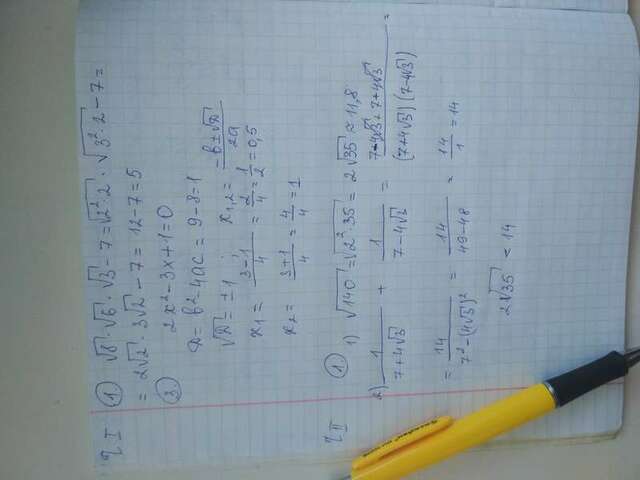 ч I ① √8·√6·√3 - 7 = √(2²·2) · √(3²·2) - 7 =
= 2√2 · 3√2 - 7 = 12 - 7 = 5
② 2x² - 3x + 1 = 0
D = b² - 4ac = 9 - 8 = 1
√D = ±1 ; x₁,₂ = (-b±√D)/2a
x₁ = (3-1)/4 = 2/4 = 1/2 = 0,5
x₂ = (3+1)/4 = 4/4 = 1
ч II ① 1) √140 = √(2²·35) = 2√35 ≈ 11,8
2) 1/(7+4√3) + 1/(7-4√3) = (7-4√3+7+4√3)/((7+4√3)(7-4√3)) =
= 14/(7²-(4√3)²) = 14/(49-48) = 14/1 = 14
2√35 < 14